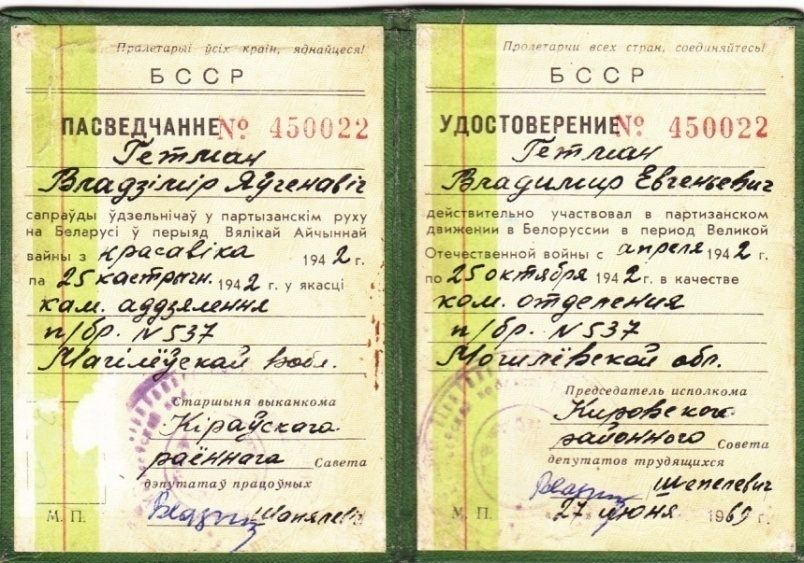 Пралетарыі ўсіх краін, яднайцеся!
БССР
ПАСВЕДЧАННЕ № 450022
Гетман
Владзімір Яўгенавіч
сапраўды ўдзельнічаў у партызанскім руху
на Беларусі ў перыяд Вялікай Айчыннай
вайны з красавіка 1942 г.
па 25 кастрычн. 1942 г. у якасці
кам. аддзялення
п/бр. N 537
Магілёўскай вобл.
Старшыня выканкома
Кіраўскага
раённага Савета
дэпутатаў працоўных
Шапялевіч
М. П.
Пролетарии всех стран, соединяйтесь!
БССР
УДОСТОВЕРЕНИЕ № 450022
Гетман
Владимир Евгеньевич
действительно участвовал в партизанском
движении в Белоруссии в период Великой
Отечественной войны с апреля 1942 г.
по 25 октября 1942 г. в качестве
ком. отделения
п/бр. N 537
Могилёвской обл.
Председатель исполкома
Кировского
районного Совета
депутатов трудящихся
Шепелевич
М. П. 27 июня 1969 г.